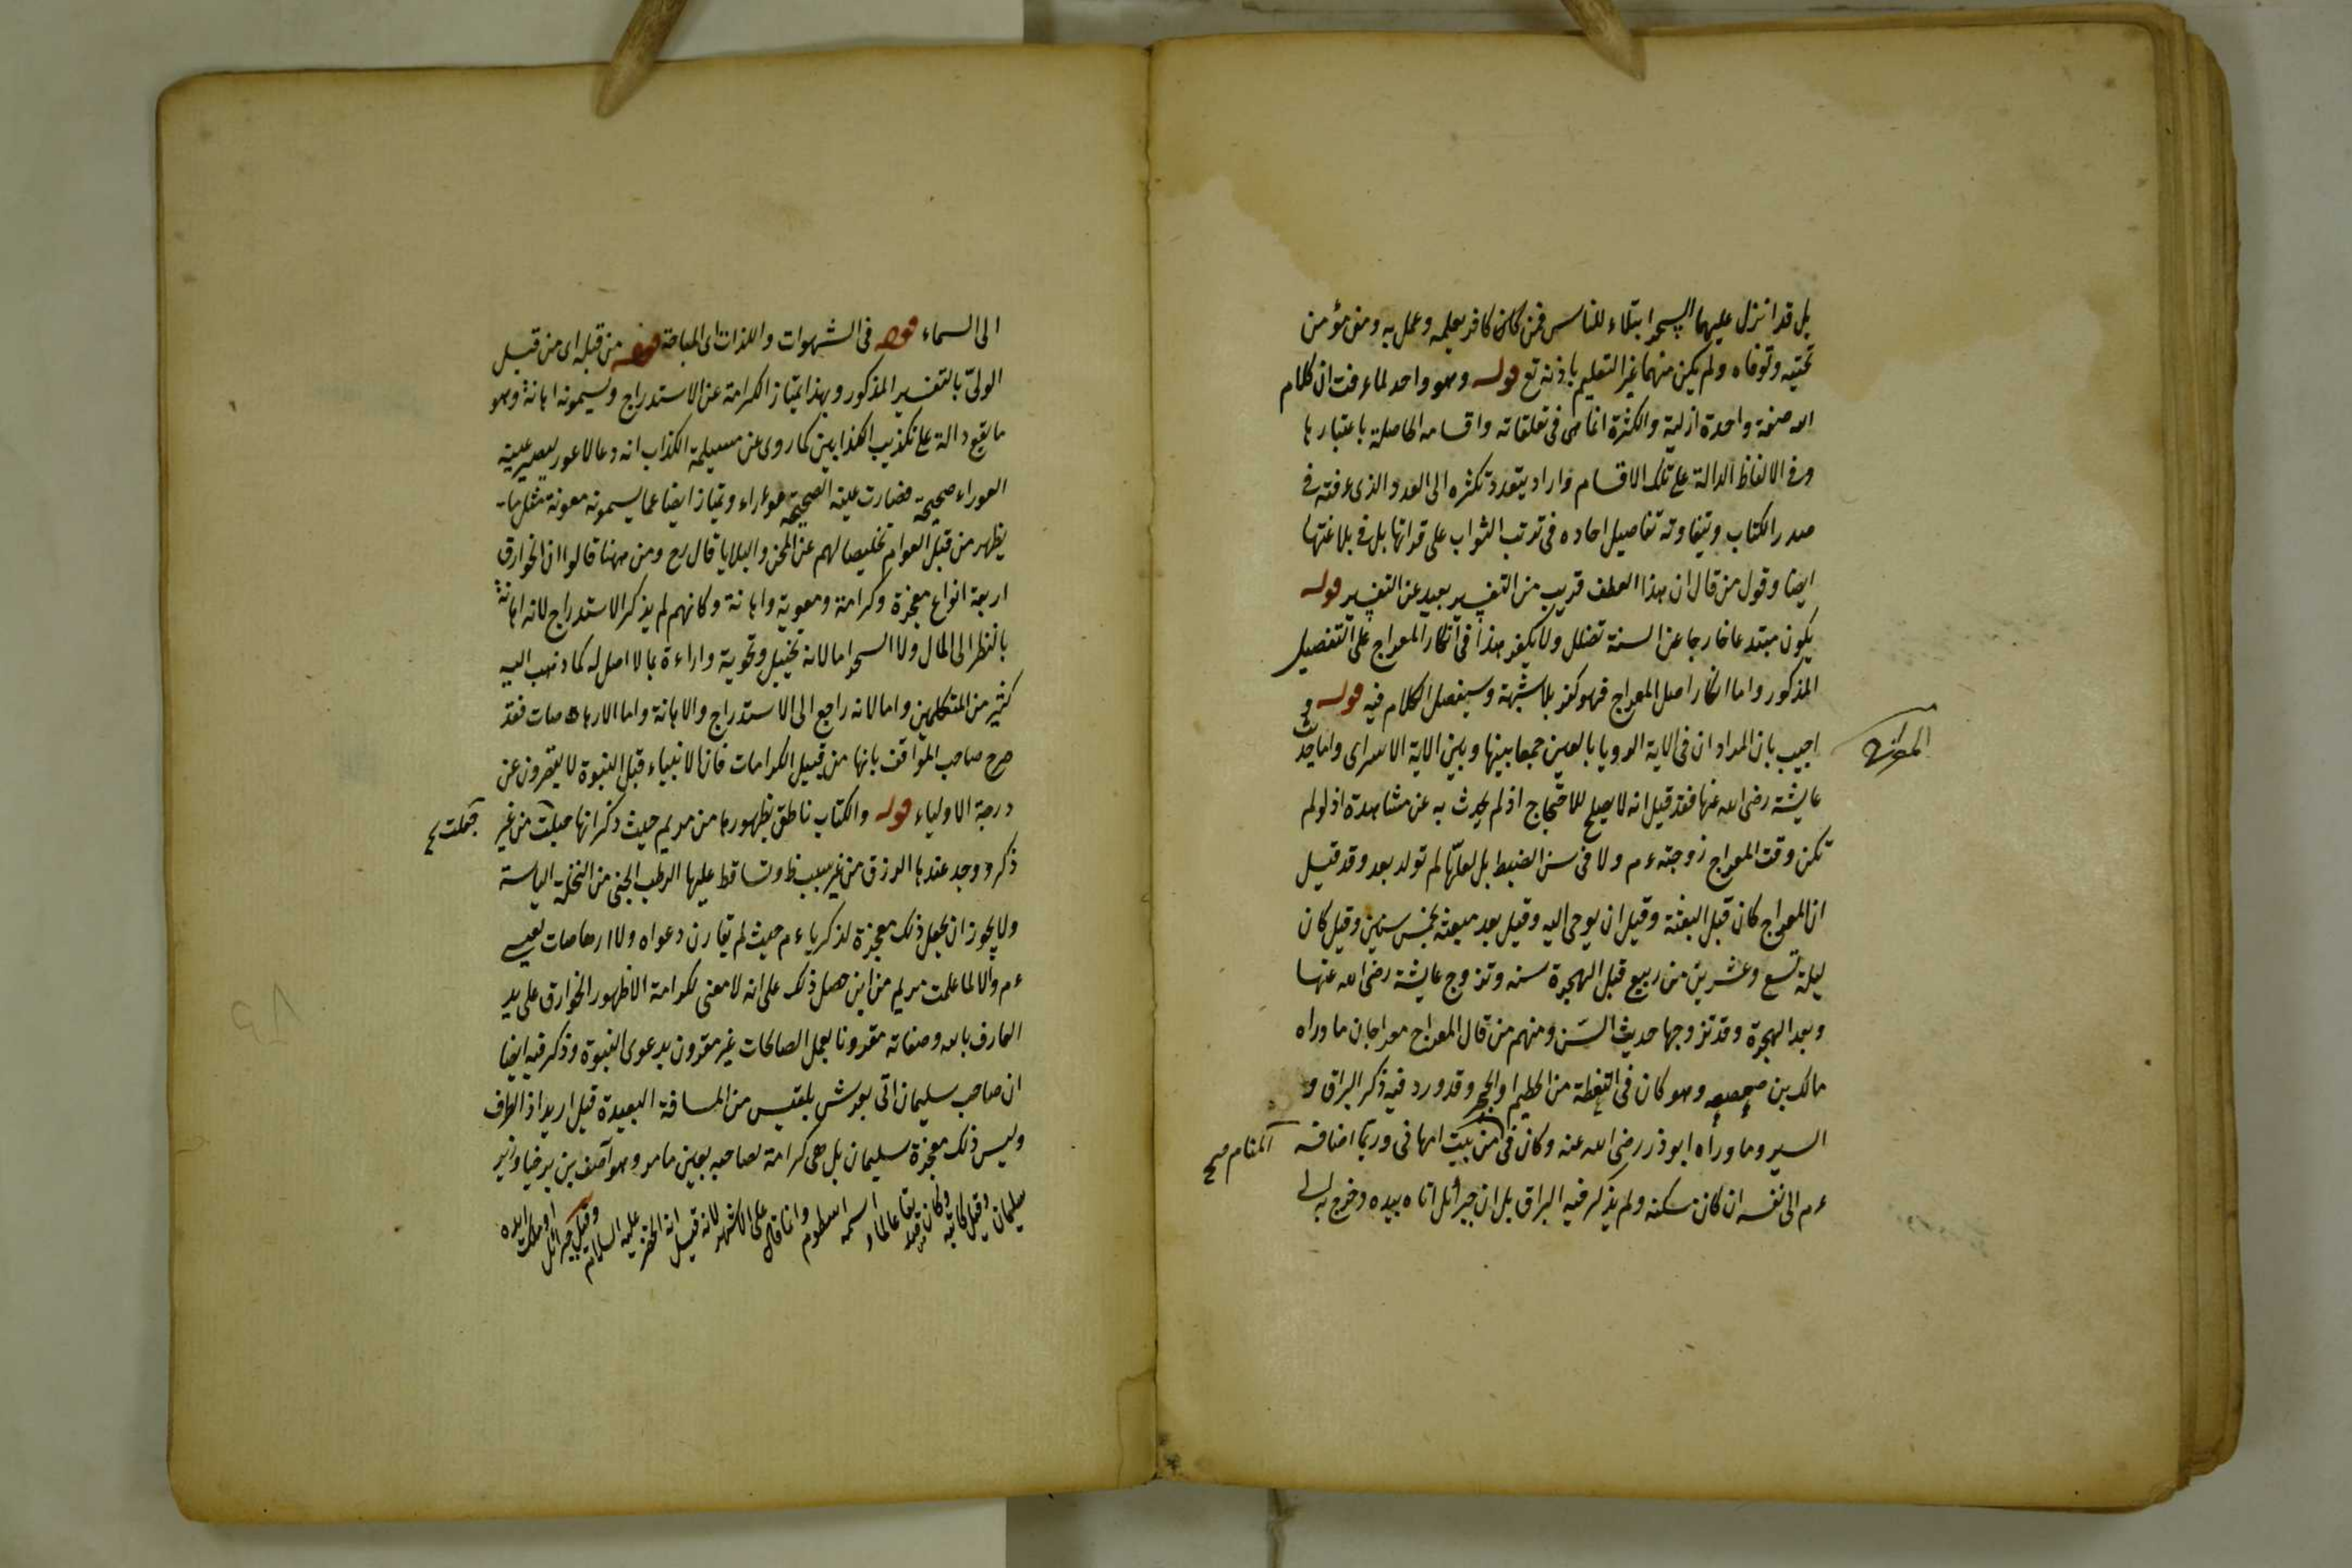 بل قد انزل عليهما السحر ابتلاء للناس فمن كان كافر يعلمه وعمل به ومن مؤمن
تجنبه وتوقاه ولم يكن منهما غير التعليم باذنه تع قوله وهو واحد لما عرفت ان كلام
الله صفة واحدة ازلية والكثرة انما هى فى تعلقاته واقسامه الحاصلة باعتبارها
وفى الالفاظ الدالة على تلك الاقسام واراد بتعدد تكثره الى العدد الذى عرفته فى
صدر الكتاب وبتفاوته تفاصيل احاده فى ترتب الثواب على قرائتها بل فى بلاغتها
ايضا وقول من قال ان هذا العطف قريب من التفسير بعيد عن التفسير قوله
يكون مبتدعا خارجا عن السنة تضلل ولا يكفر هذا فى انكار المعراج على التفصيل
المذكور واما انكار اصل المعراج فهو كفر بلا شبهة وسيفصل الكلام فيه قوله و
اجيب بان المراد ان فى الاية الرويا بالعين جمعا بينها وبين الاية الاسرى واما حديث
عايشة رضى الله عنها فقد قيل انه لا يصلح للاحتجاج اذ لم يحدث به عن مشاهدة اذ لو لم
تكن وقت المعراج زوجته عم ولا فى سن الضبط بل لعلها لم تولد بعد وقد قيل
ان المعراج كان قبل البعثة وقيل ان يوحى اليه وقيل بعد مبعثه بخمس سنين وقيل كان
ليلة تسع وعشرين من ربيع قبل الهجرة سنه وتزوج عايشة رضى الله عنها
وبعد الهجرة وقد تزوجها حديث السن ومنهم من قال المعراج معراجان ما وراه
مالك بن صعصعه وهو كان فى اليقظة من الحطيم او الحجر وقد ورد فيه ذكر البراق و
السير وما وراه ابوذر رضى الله عنه وكان فى من بيت امهانى وربما اضافه
المنام صح
عم الى نفسه ان كان مسكنه ولم يذكر فيه البراق بل ان جبرائل اتاه بيده وخرج به الى
الى السماء قوله فى الشهوات واللذات اى المباحة قوله من قبله اى من قبل
الولى بالتفسير المذكور وبهذا يمتاز الكرامة عن الاستدراج ويسمونه اهانة وهو
ما يقع دالة على تكذيب الكذابين كما روى عن مسيلمة الكذاب انه دعا لاعور ليصير عينه
العوراء صحيحة فصارت عينه الصحيحة عوراء وتمتاز ايضا عما يسمونه معونة مثل ما
يظهر من قبل العوام تخليصا لهم عن المحن والبلايا قال رح ومن ههنا قالوا ان الخوارق
اربعة انواع معجزة وكرامة ومعوية واهانة وكانهم لم يذكر الاستدراج لانه اهانة
بالنظر الى المال ولا السحر اما لانه تخييل وتمويه واراءة بما لا اصل له كما ذهب اليه
كثير من المتكلمين واما لانه راجع الى الاستدراج والاهانة واما الارهاصات فقد
صرح صاحب المواقف بانها من قبيل الكرامات فان الانبياء قبل النبوة لا يقصرون عن
درجة الاولياء قوله والكتاب ناطق بظهورها من مريم حيث ذكر انها حبلت من غير
جعلت
ذكر ووجد عندها الرزق من غير سبب ظ وتساقط عليها الرطب الجنى من النخلة اليابسة
ولا يجوز ان يجعل ذلك معجزة لزكرياء عم حيث لم تقارن دعواه ولا ارهاصات لعيسى
عم والا لما علمت مريم من اين حصل ذلك على انه لا معنى لكرامة الا ظهور الخوارق على يد
العارف بالله وصفاته مقرونا بعمل الصالحات غير مقرون بدعوى النبوة وذكر فيه ايضا
ان صاحب سليمان اتى بعرش بلقيس من المسافة البعيدة قبل ارتداد الطرف
وليس ذلك معجزة سليمان بل هى كرامة لصاحبه يعين مامر وهو آصف بن برخيا وزير
سليمان وقيل كاتبه وكان اسمه اسطوم وانما قال على الاشهر لانه قيل انه الخضر عليه السلام وقيل جبرائل او ملك ايده